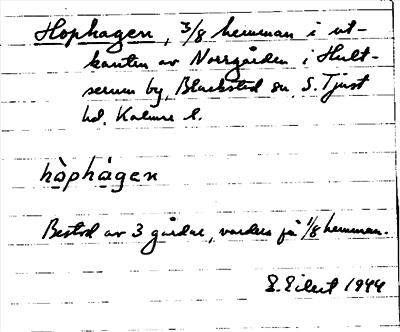 Hophagen, 3/8 hemman i ut-
kanten av Norrgården i Hult-
serum by, Blackstad sn, S. Tjust
hd, Kalmar l.
hòphágen
Bestod av 3 gårdar, vardera på 1/8 hemman.
E. Eilert 1944